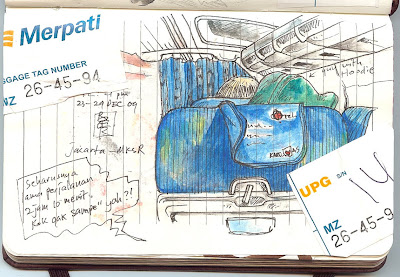 Merpati
GGAGE TAG NUMBER
MZ 26-45-94
23-24 DEC 09
Jakarta - MKSR
Seharusnya
cuma perjalanan
2 jam 10 menit.
Kok gak sampe" yah?!
guy with
Hoodie
UPG S/N
14
MZ
26-45-9